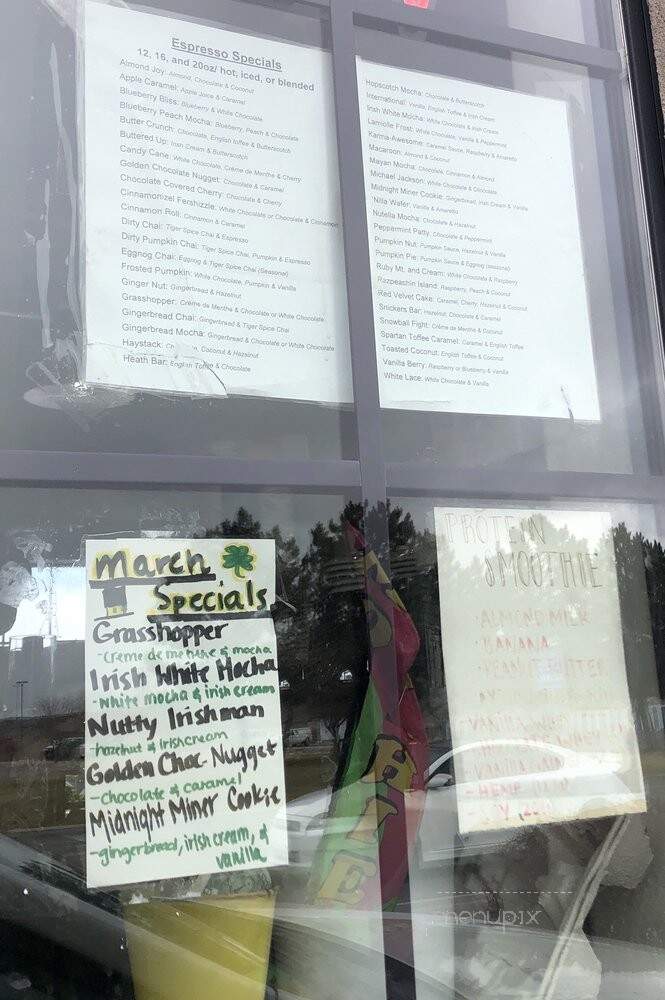 Espresso Specials
12, 16, and 20oz/ hot, iced, or blended
Almond Joy: Almond, Chocolate & Coconut
Apple Caramel: Apple Juice & Caramel
Blueberry Bliss: Blueberry & White Chocolate
Blueberry Peach Mocha: Blueberry, Peach & Chocolate
Butter Crunch: Chocolate, English Toffee & Butterscotch
Buttered Up: Irish Cream & Butterscotch
Candy Cane: White Chocolate, Crème de Menthe & Cherry
Golden Chocolate Nugget: Chocolate & Caramel
Chocolate Covered Cherry: Chocolate & Cherry
Cinnamonizel Fershizzle: White Chocolate or Chocolate & Cinnamon
Cinnamon Roll: Cinnamon & Caramel
Dirty Chai: Tiger Spice Chai & Espresso
Dirty Pumpkin Chai: Tiger Spice Chai, Pumpkin & Espresso
Eggnog Chai: Eggnog & Tiger Spice Chai (Seasonal)
Frosted Pumpkin: White Chocolate, Pumpkin & Vanilla
Ginger Nut: Gingerbread & Hazelnut
Grasshopper: Crème de Menthe & Chocolate or White Chocolate
Gingerbread Chai: Gingerbread & Tiger Spice Chai
Gingerbread Mocha: Gingerbread & Chocolate or White Chocolate
Haystack: Coconut & Hazelnut
Heath Bar: English Toffee & Chocolate
Hopscotch Mocha: Chocolate & Butterscotch
International: Vanilla, English Toffee & Irish Cream
Irish White Mocha: White Chocolate & Irish Cream
Lamiolle Frost: White Chocolate, Vanilla & Peppermint
Karma-Awesome: Caramel Sauce, Raspberry & Amaretto
Macaroon: Almond & Coconut
Mayan Mocha: Chocolate, Cinnamon & Almond
Michael Jackson: White Chocolate & Chocolate
Midnight Miner Cookie: Gingerbread, Irish Cream & Vanilla
'Nilla Wafer: Vanilla & Amaretto
Nutella Mocha: Chocolate & Hazelnut
Peppermint Patty: Chocolate & Peppermint
Pumpkin Nut: Pumpkin Sauce, Hazelnut & Vanilla
Pumpkin Pie: Pumpkin Sauce & Eggnog (seasonal)
Ruby Mt. and Cream: White Chocolate & Raspberry
Razpeachin Island: Raspberry, Peach & Coconut
Red Velvet Cake: Caramel, Cherry, Hazelnut & Coconut
Snickers Bar: Hazelnut, Chocolate & Caramel
Snowball Fight: Crème de Menthe & Coconut
Spartan Toffee Caramel: Caramel & English Toffee
Toasted Coconut: English Toffee & Coconut
Vanilla Berry: Raspberry or Blueberry & Vanilla
White Lace: White Chocolate & Vanilla
March
Specials
Grasshopper
-Creme de menthe & mocha
Irish White Mocha
-White mocha & irish cream
Nutty Irishman
-hazelnut & irishcream
Golden Choc. Nugget
-chocolate & caramel
Midnight Miner Cookie
-gingerbread, irish cream, &
vanilla
PROTEIN
SMOOTHIE
-ALMOND MILK
-BANANA
-PEANUT BUTTER
HIE
menupix